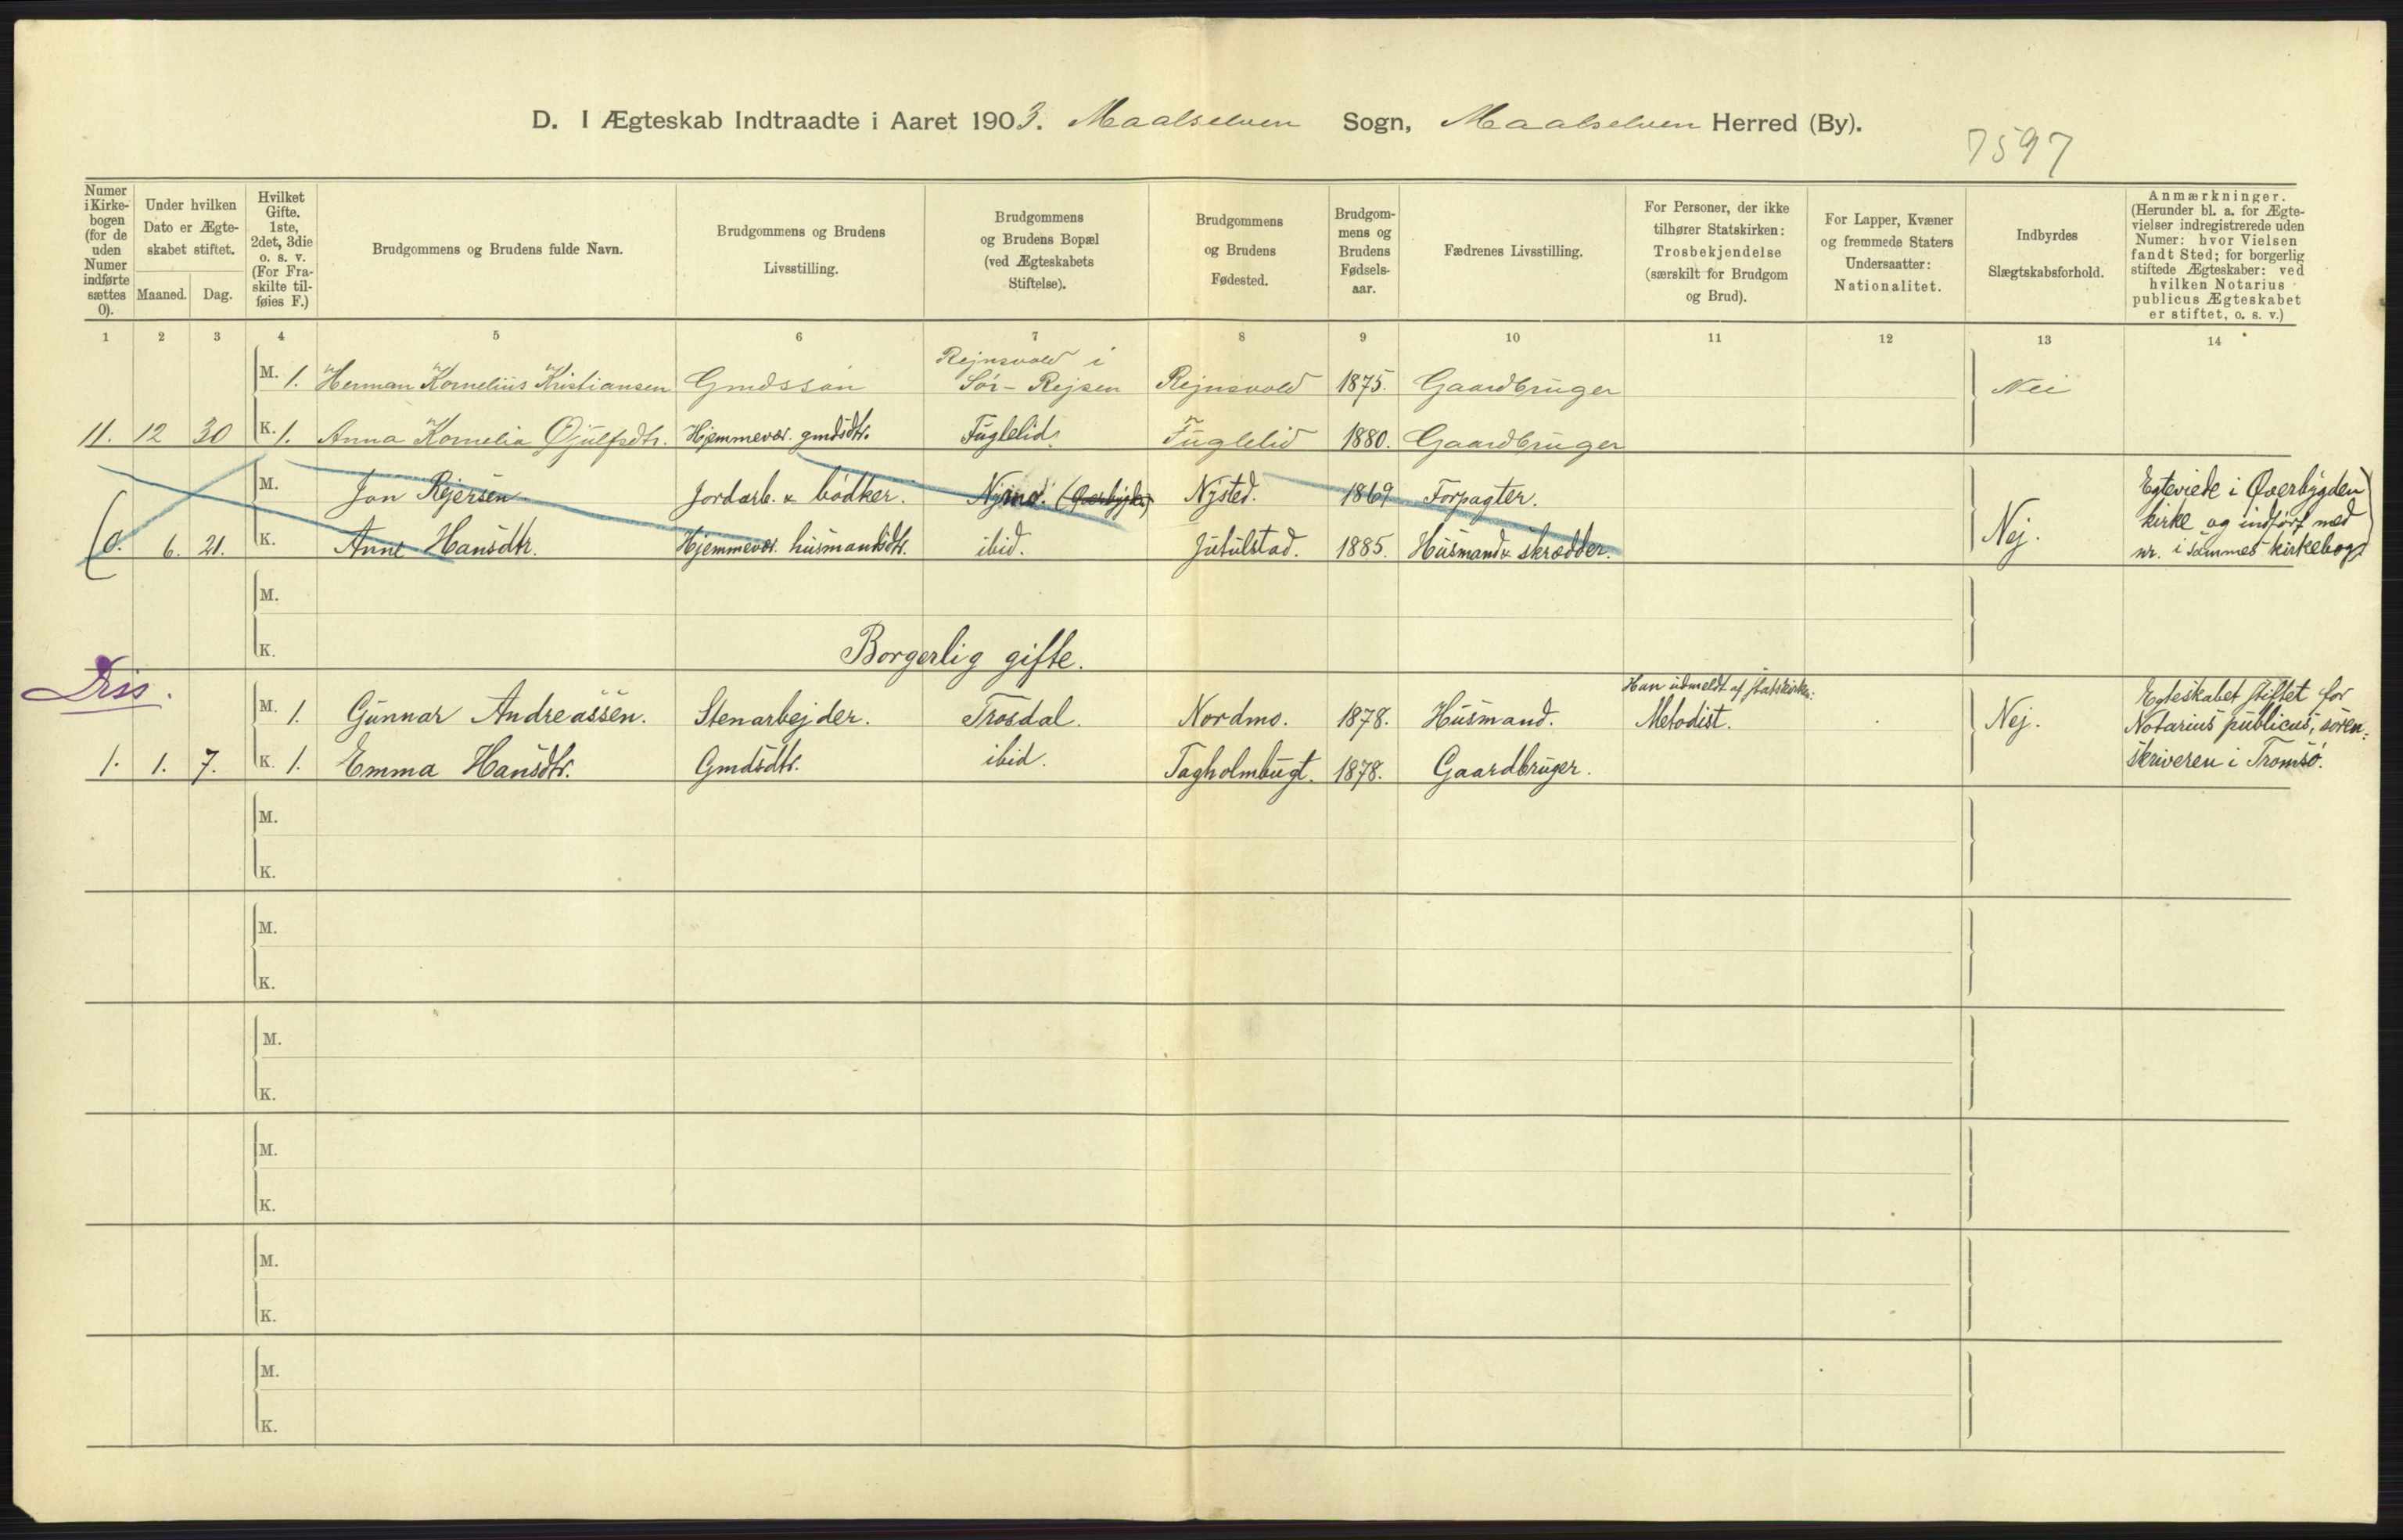 D. I Ægteskab Indtraadte i Aaret 1903. Maalselven Sogn, Maalselven Herred (By).
7597
Numer i Kirke-bogen (for de uden Numer indførte sættes 0).
Under hvilken Dato er Ægte-skabet stiftet.
Maaned. Dag.
Hvilket Gifte. 1ste, 2det, 3die o. s. v. (For Fra-skilte til-føies F.)
Brudgommens og Brudens fulde Navn.
Brudgommens og Brudens Livsstilling.
Brudgommens og Brudens Bopæl (ved Ægteskabets Stiftelse).
Brudgommens og Brudens Fødested.
Brudgom-mens og Brudens Fødsels-aar.
Fædrenes Livsstilling.
For Personer, der ikke tilhører Statskirken: Trosbekjendelse (særskilt for Brudgom og Brud).
For Lapper, Kvæner og fremmede Staters Undersaatter: Nationalitet.
Indbyrdes Slægtskabsforhold.
Anmærkninger. (Herunder bl. a. for Ægte-vielser indregistrerede uden Numer: hvor Vielsen fandt Sted; for borgerlig stiftede Ægteskaber: ved hvilken Notarius publicus Ægteskabet er stiftet, o. s. v.)
1 2 3 4 5 6 7 8 9 10 11 12 13 14
Rejnsvold i
M. 1. Herman Kornelius Kristiansen Gmdssøn Sør-Rejsen Rejnsvold 1875. Gaardbruger Nei
11. 12 30 K. 1. Anna Kornelia Øjulfsdtr. Hjemmevær. gmdsdtr. Fuglelid. Fuglelid 1880. Gaardbruger
M. Jon Rejersen Jordarb. & bødker. Nymo. (Øverbygden) Nysted. 1869 Forpagter. Egteviede i Øverbygden
kirke og indført med
(0. 6. 21. K. Anne Hansdtr. Hjemmevær. husmandsdtr. ibid. Jutulstad. 1885. Husmand & skrædder. Nej. nr. i sammes kirkebog)
M.
K.
Borgerlig gifte.
Diss.
Han udmeldt af statskirken:
M. 1. Gunnar Andreassen. Stenarbejder. Trosdal. Nordmo. 1878. Husmand. Metodist. Nej. Egteskabet stiftet for
Notarius publicus, soren-
1. 1. 7. K. 1. Emma Hansdtr. Gmdsdtr. ibid. Tagholmbugt. 1878. Gaardbruger. skriveren i Tromsø.
M.
K.
M.
K.
M.
K.
M.
K.
M.
K.
M.
K.